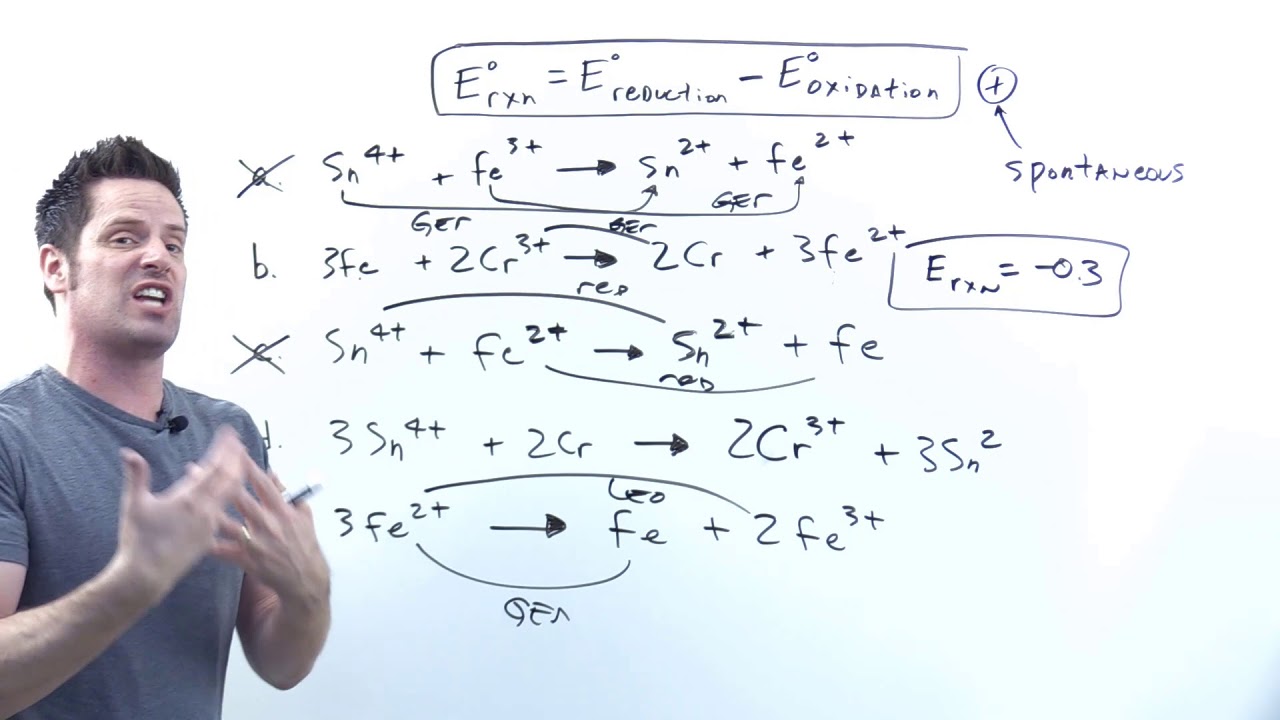 E°rxn = E°reduction − E°oxidation +
spontaneous
a. Sn⁴⁺ + Fe³⁺ → Sn²⁺ + Fe²⁺
GER GER
GER
b. 3Fe + 2Cr³⁺ → 2Cr + 3Fe²⁺
red
Erxn = −0.3
c. Sn⁴⁺ + Fe²⁺ → Sn²⁺ + Fe
red
d. 3Sn⁴⁺ + 2Cr → 2Cr³⁺ + 3Sn²
LEO
3Fe²⁺ → Fe + 2Fe³⁺
GER